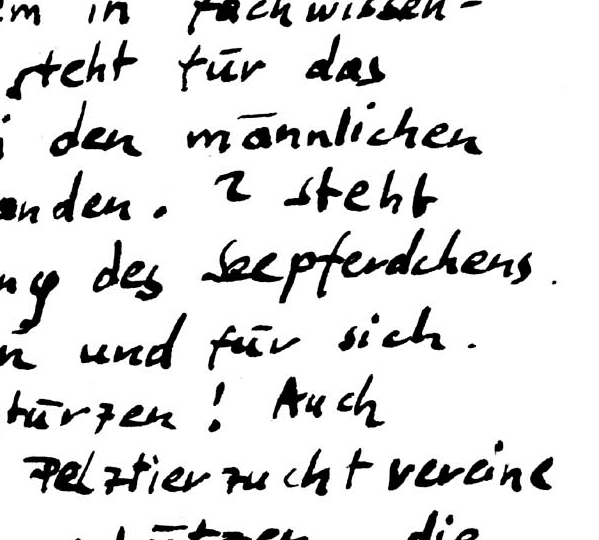 em in Fachwissen-
steht für das
i den männlichen
anden. 2 steht
ng des Seepferdchens.
n und für sich.
türzen! Auch
Pelztierzuchtvereine
ützen die